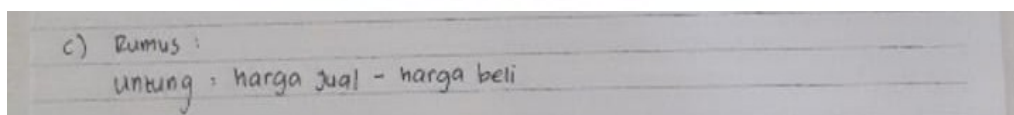 c) Rumus :
untung : harga Jual - harga beli